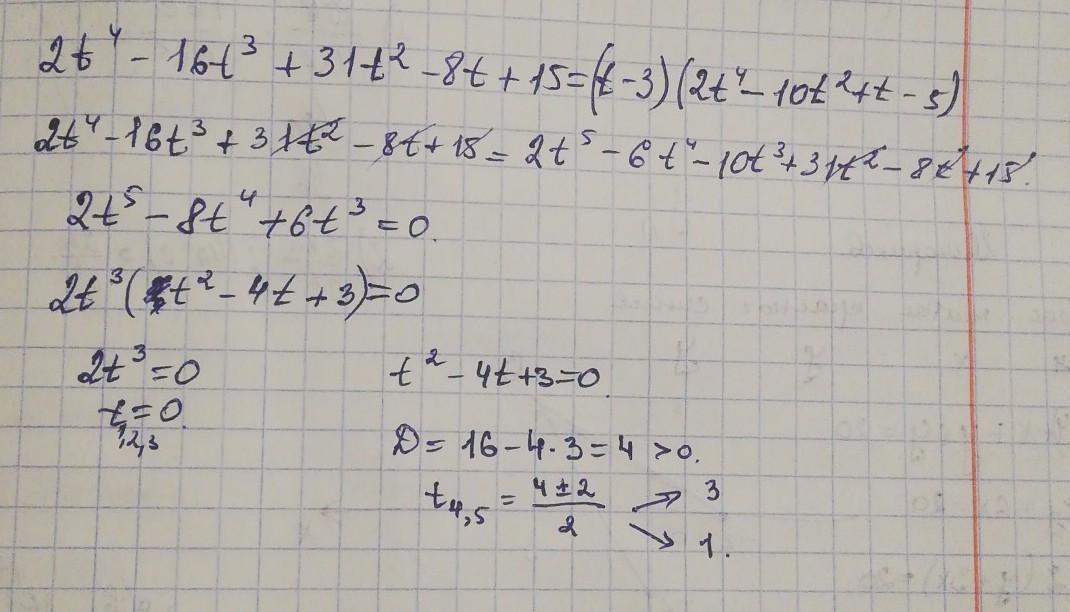 2t⁴ - 16t³ + 31t² - 8t + 15 = (t - 3)(2t⁴ - 10t² + t - 5)
2t⁴ - 16t³ + 31t² - 8t + 15 = 2t⁵ - 6t⁴ - 10t³ + 31t² - 8t + 15.
2t⁵ - 8t⁴ + 6t³ = 0.
2t³(t² - 4t + 3) = 0
2t³ = 0
t = 0.
1,2,3
t² - 4t + 3 = 0.
D = 16 - 4·3 = 4 > 0.
t₄,₅ = (4 ± 2)/2 ↗ 3
↘ 1.